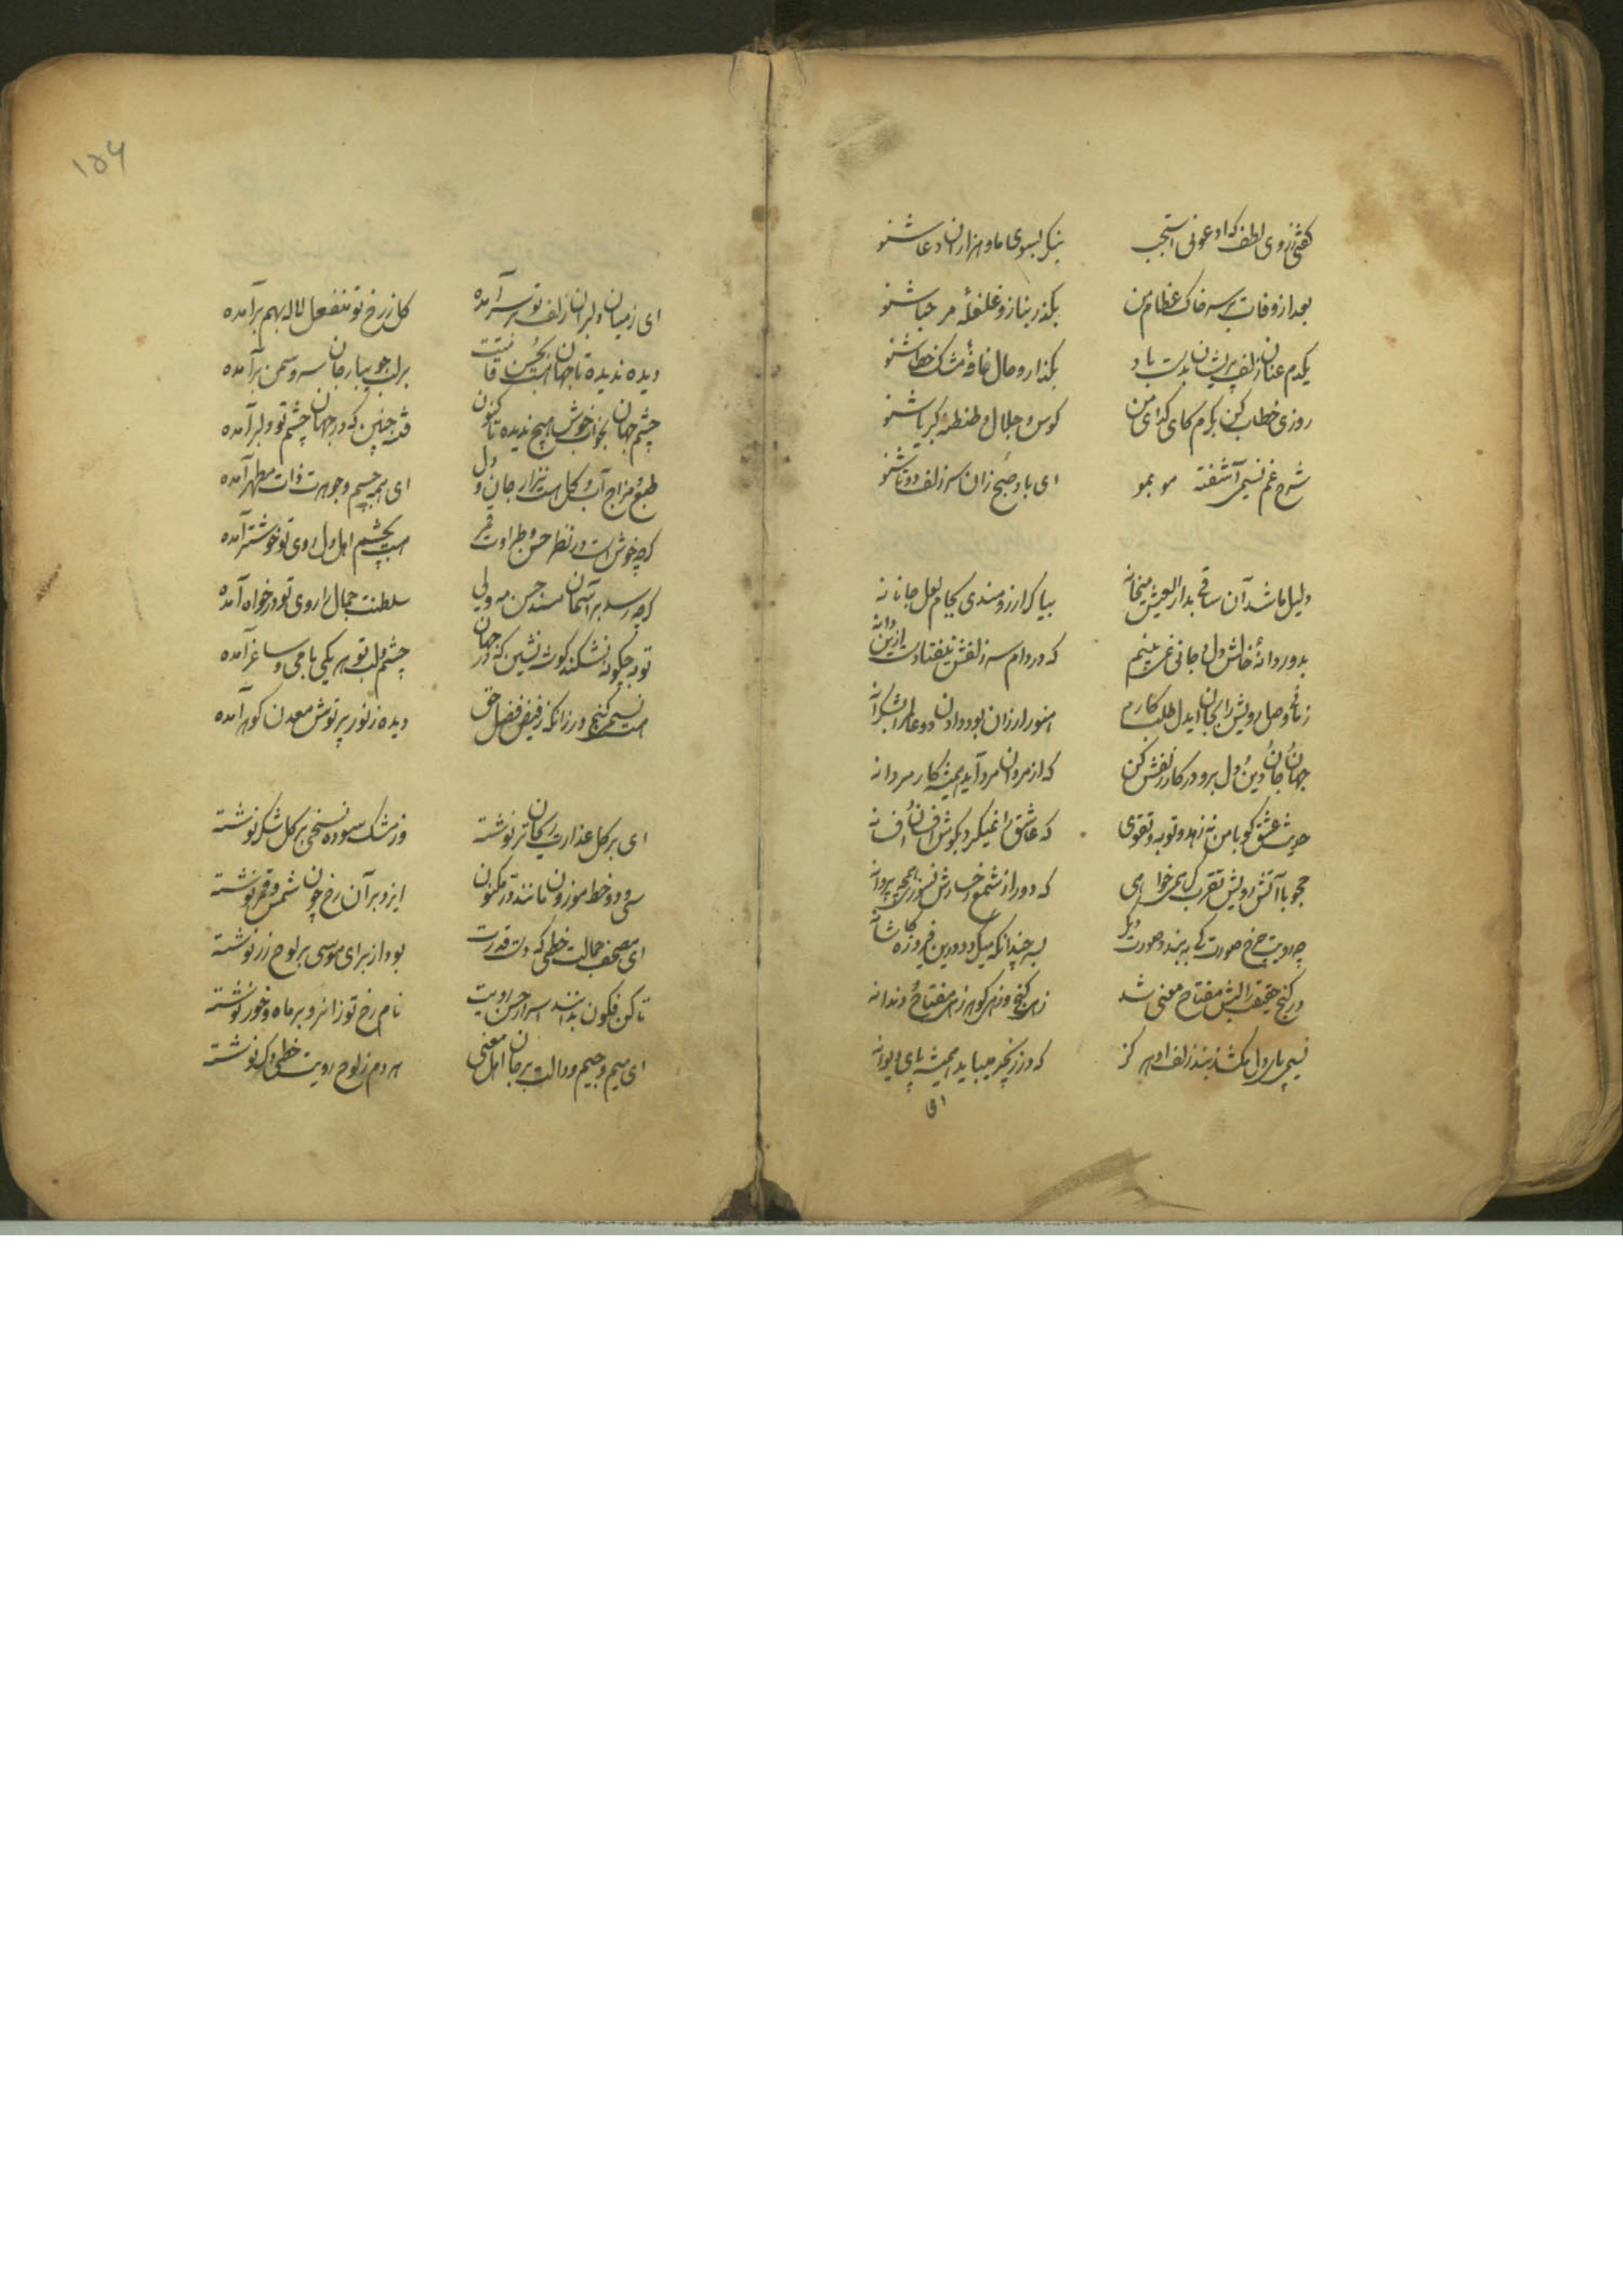 گفتی ز روی لطف که ادعونی استجب بنگر بسوی ما و هزاران دعا شنو
بعد از وفات بر سر خاک عظام من بگذر بناز و غلغلهٔ مرحبا شنو
یکدم عنان زلف پریشان بدست باد بگذار و حال نافهٔ مشک خطا شنو
روزی خطاب کن بکرم کای گدای من کوس و جلال و طنطنهٔ کبریا شنو
شرح غم نسیمی آشفته مو بمو ای باد صبح زان سر زلف دوتا شنو
دلیل ما شد آن ساقی بدار العیش میخانه بیا کر ارزومندی بجام لعل جانانه
بدور دانهٔ خالش دل و جانی نمی‌بینم که در دام سر زلفش نیفتادست ازین دانه
زمانی وصل رویش را بجان ایدل طلب کارم هنوز ارزان بود دادن دو عالم را بشکرانه
جهان و جان و دین و دل برو در کار زلفش کن که از مردان مرد آید همیشه کار مردانه
حدیث عشق کو با من نه زهد و توبه و تقوی که عاشق را نمیگیرد بگوش افسون و افسانه
چو با آتش رویش تقرب کر همی خواهی که دور از شمع رخسارش نسوزی همچو پروانه
چو رویت چرخ صورت کر نه بیند صورت دیگر بسر چندانکه میگردد درین فیروزه کاشانه
در کنج حقیقت را لبش مفتاح معنی شد زهی کنج و زهی کوهر زهی مفتاح دندانه
نسیمی را دل مکشا ز بند زلف او هرگز که در زنجیر میباید همیشه پای دیوانه
۱۵۶
ای ز میان دلبران زلف تو بر سر آمده کل ز رخ تو منفعل لاله بهم برآمده
دیده ندیده تا جهان هست بحسن قامتت بر لب جویبار جان سرو سمن برآمده
چشم جهان بخواب خوش هیچ ندیده تا کنون فتنه چنین که در جهان چشم تو دلبر آمده
طبع و مزاج آب و کل هست نزار جان و دل ای همه جسم و جوهرت ذات مطهر آمده
کرچه خوش است در نظر حسن و طراوت قمر هست بچشم اهل دل روی تو خوشتر آمده
کرچه رسد بر آسمان مسند حسن مه ولی سلطنت جمال را روی تو در خواه آمده
توبه چگونه نشکند کوشه نشین که در جهان چشم و لب تو هر یکی با می و ساغر آمده
هست نسیمی کنج در زانکه ز فیض فضل حق دیده ز نور پرتوش معدن کوهر آمده
ای بر کل عذارت ریحان تر نوشته وز مشک سوده نسخی بر کل شکر نوشته
سی و دو خط موزون مانند در مکنون ایزد بر آن رخ چون شمس و قمر نوشته
ای مصحف جمالت خطی که دست قدرت بود از برای موسی بر لوح زر نوشته
تا کن فکون بدانند اسرار حسن رویت نام رخ تو زانرو بر ماه و خور نوشته
ای میم و جیم و دالت بر جان اهل معنی هر دم ز لوح رویت خطی دکر نوشته